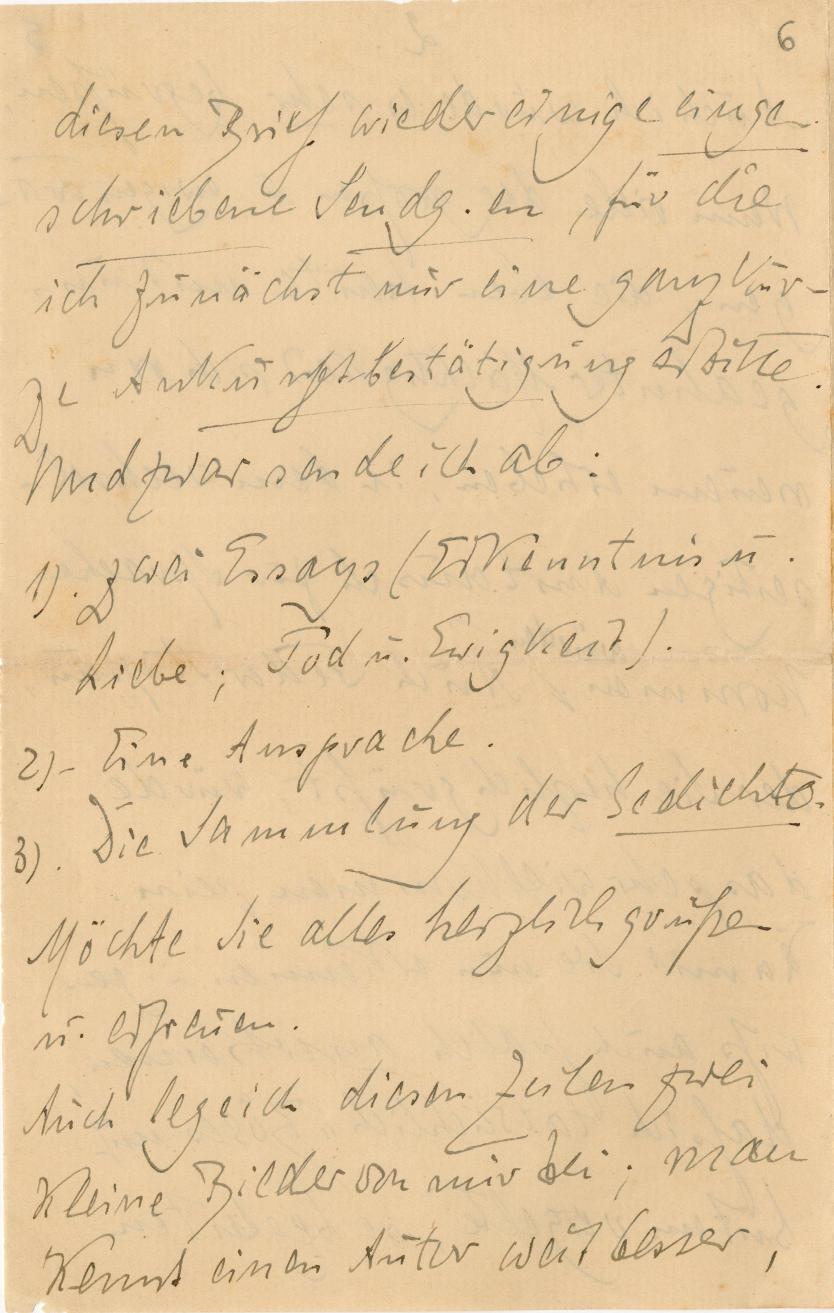 6
diesen Brief wieder einige einge-
schriebene Sendg.en, für die
ich zunächst nur eine ganz kur-
ze Ankunftbestätigung erbitte.
Und zwar sende ich ab:
1). Zwei Essays (Erkenntnis u.
Liebe; Tod u. Ewigkeit).
2)- Eine Ansprache.
3). Die Sammlung der Gedichte.
Möchte Sie alles herzlich grüßen
u. erfreuen.
Auch lege ich diesen Zeilen zwei
kleine Bilder von mir bei; man
kennt einen Autor weit besser,